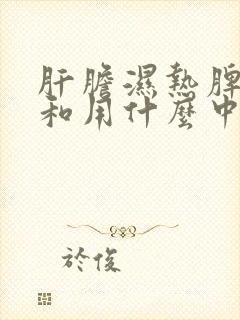 肝膽濕熱脾
和用什麼中
於俊